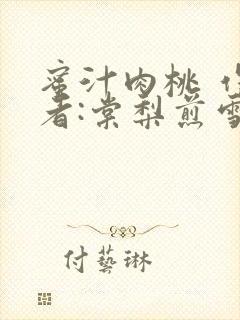 蜜汁肉桃
者:棠梨煎雪
付藝琳